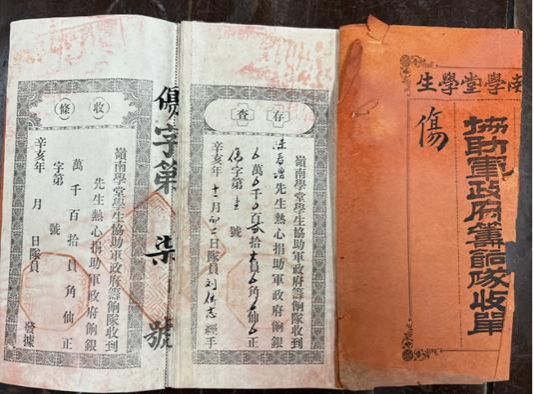 南學堂學生
協助軍政府籌餉隊收單
傷
存查
嶺南學堂學生協助軍政府籌餉隊收到
先生熱心捐助軍政府餉銀
萬 千 百 拾 員 角 仙正
傷字第 號
辛亥年十一月初二日隊員劉 志經手
傷字第柒號
收條
嶺南學堂學生協助軍政府籌餉隊收到
先生熱心捐助軍政府餉銀
萬千百拾員角仙正
字第 號
辛亥年 月 日隊員 發據